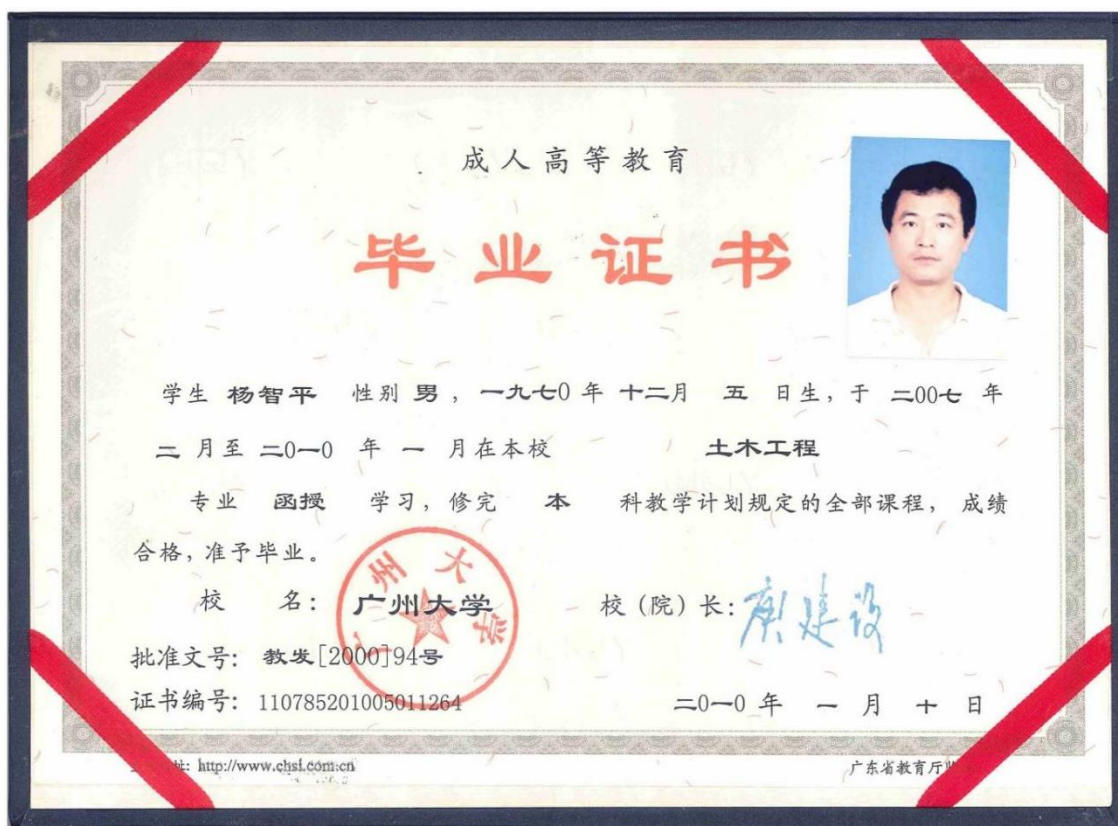 成人高等教育
毕业证书
学生 杨智平 性别 男，一九七0 年 十二月 五 日生，于 二00七 年
二 月至 二0一0 年 一 月在本校 土木工程
专业 函授 学习，修完 本 科教学计划规定的全部课程，成绩
合格，准予毕业。
校 名：广州大学
校（院）长：庾建设
广州大学
批准文号：教发[2000]94号
证书编号：110785201005011264
二0一0 年 一 月 十 日
址：http://www.chsi.com.cn
广东省教育厅